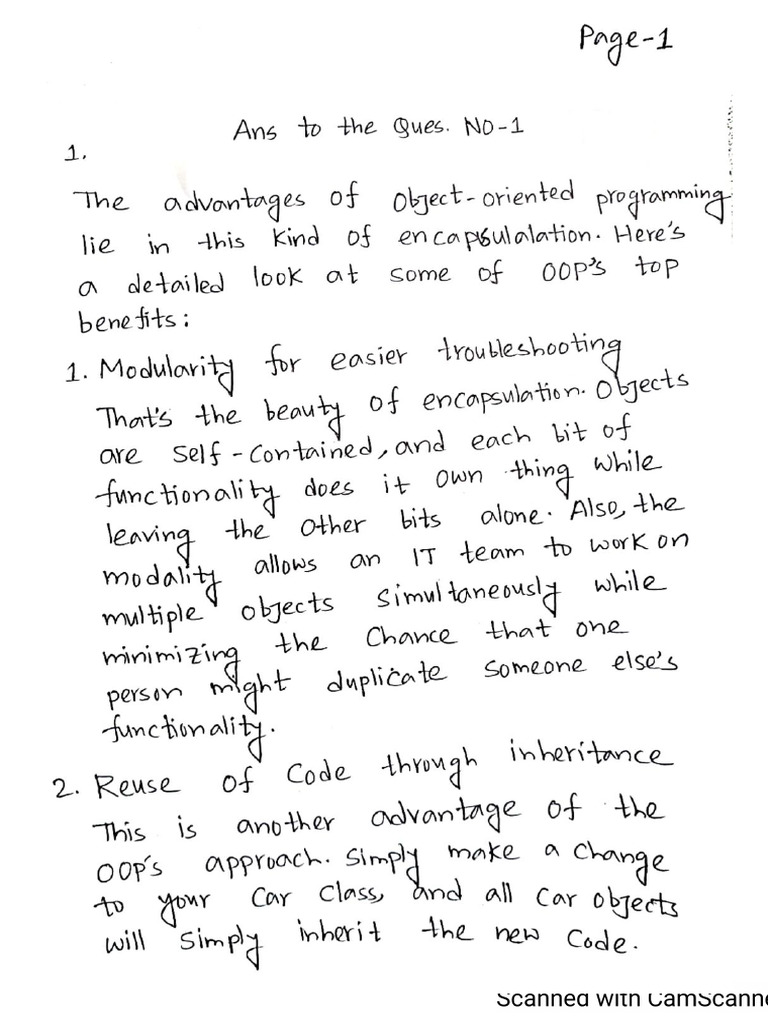 Page-1
Ans to the Ques. NO-1
1.
The advantages of object-oriented programming
lie in this kind of encapsulalation. Here's
a detailed look at some of OOP's top
benefits:
1. Modularity for easier troubleshooting
That's the beauty of encapsulation. Objects
are self-contained, and each bit of
functionality does it own thing while
leaving the other bits alone. Also, the
modality allows an IT team to work on
multiple objects simultaneously while
minimizing the chance that one
person might duplicate someone else's
functionality.
2. Reuse of Code through inheritance
This is another advantage of the
OOP's approach. Simply make a change
to your Car Class, and all Car objects
will simply inherit the new Code.
Scanned with CamScanne